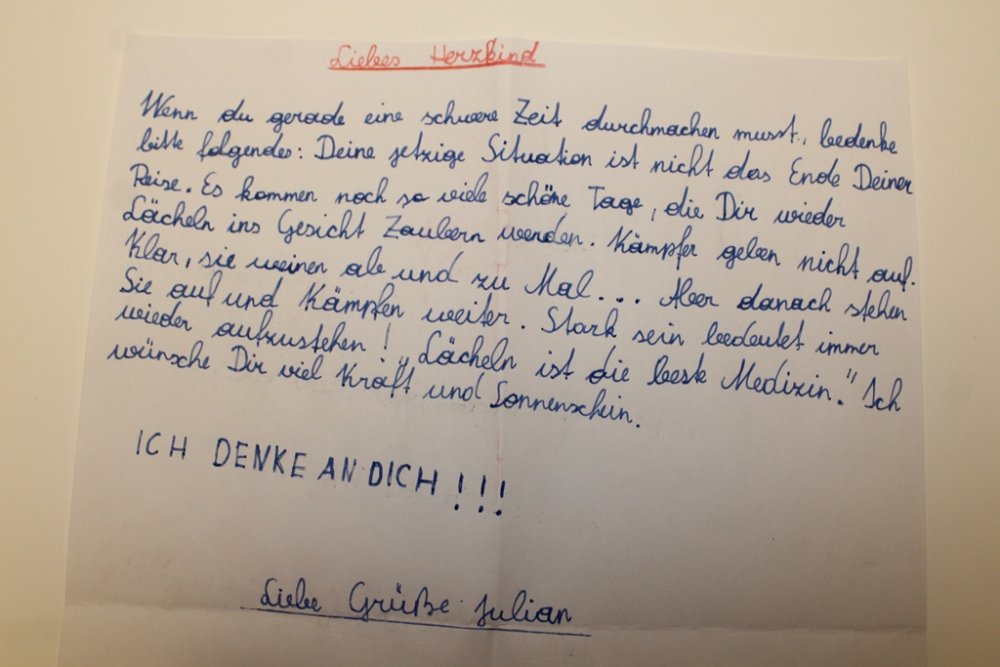 Liebes Herzkind
Wenn du gerade eine schwere Zeit durchmachen musst, bedenke
bitte folgendes: Deine jetzige Situation ist nicht das Ende Deiner
Reise. Es kommen noch so viele schöne Tage, die Dir wieder
Lächeln ins Gesicht Zaubern werden. Kämpfer geben nicht auf.
Klar, sie weinen ab und zu Mal... Aber danach stehen
Sie auf und Kämpfen weiter. Stark sein bedeutet immer
wieder aufzustehen! „Lächeln ist die beste Medizin." Ich
wünsche Dir viel Kraft und Sonnenschein.
ICH DENKE AN DICH!!!
Liebe Grüße Julian